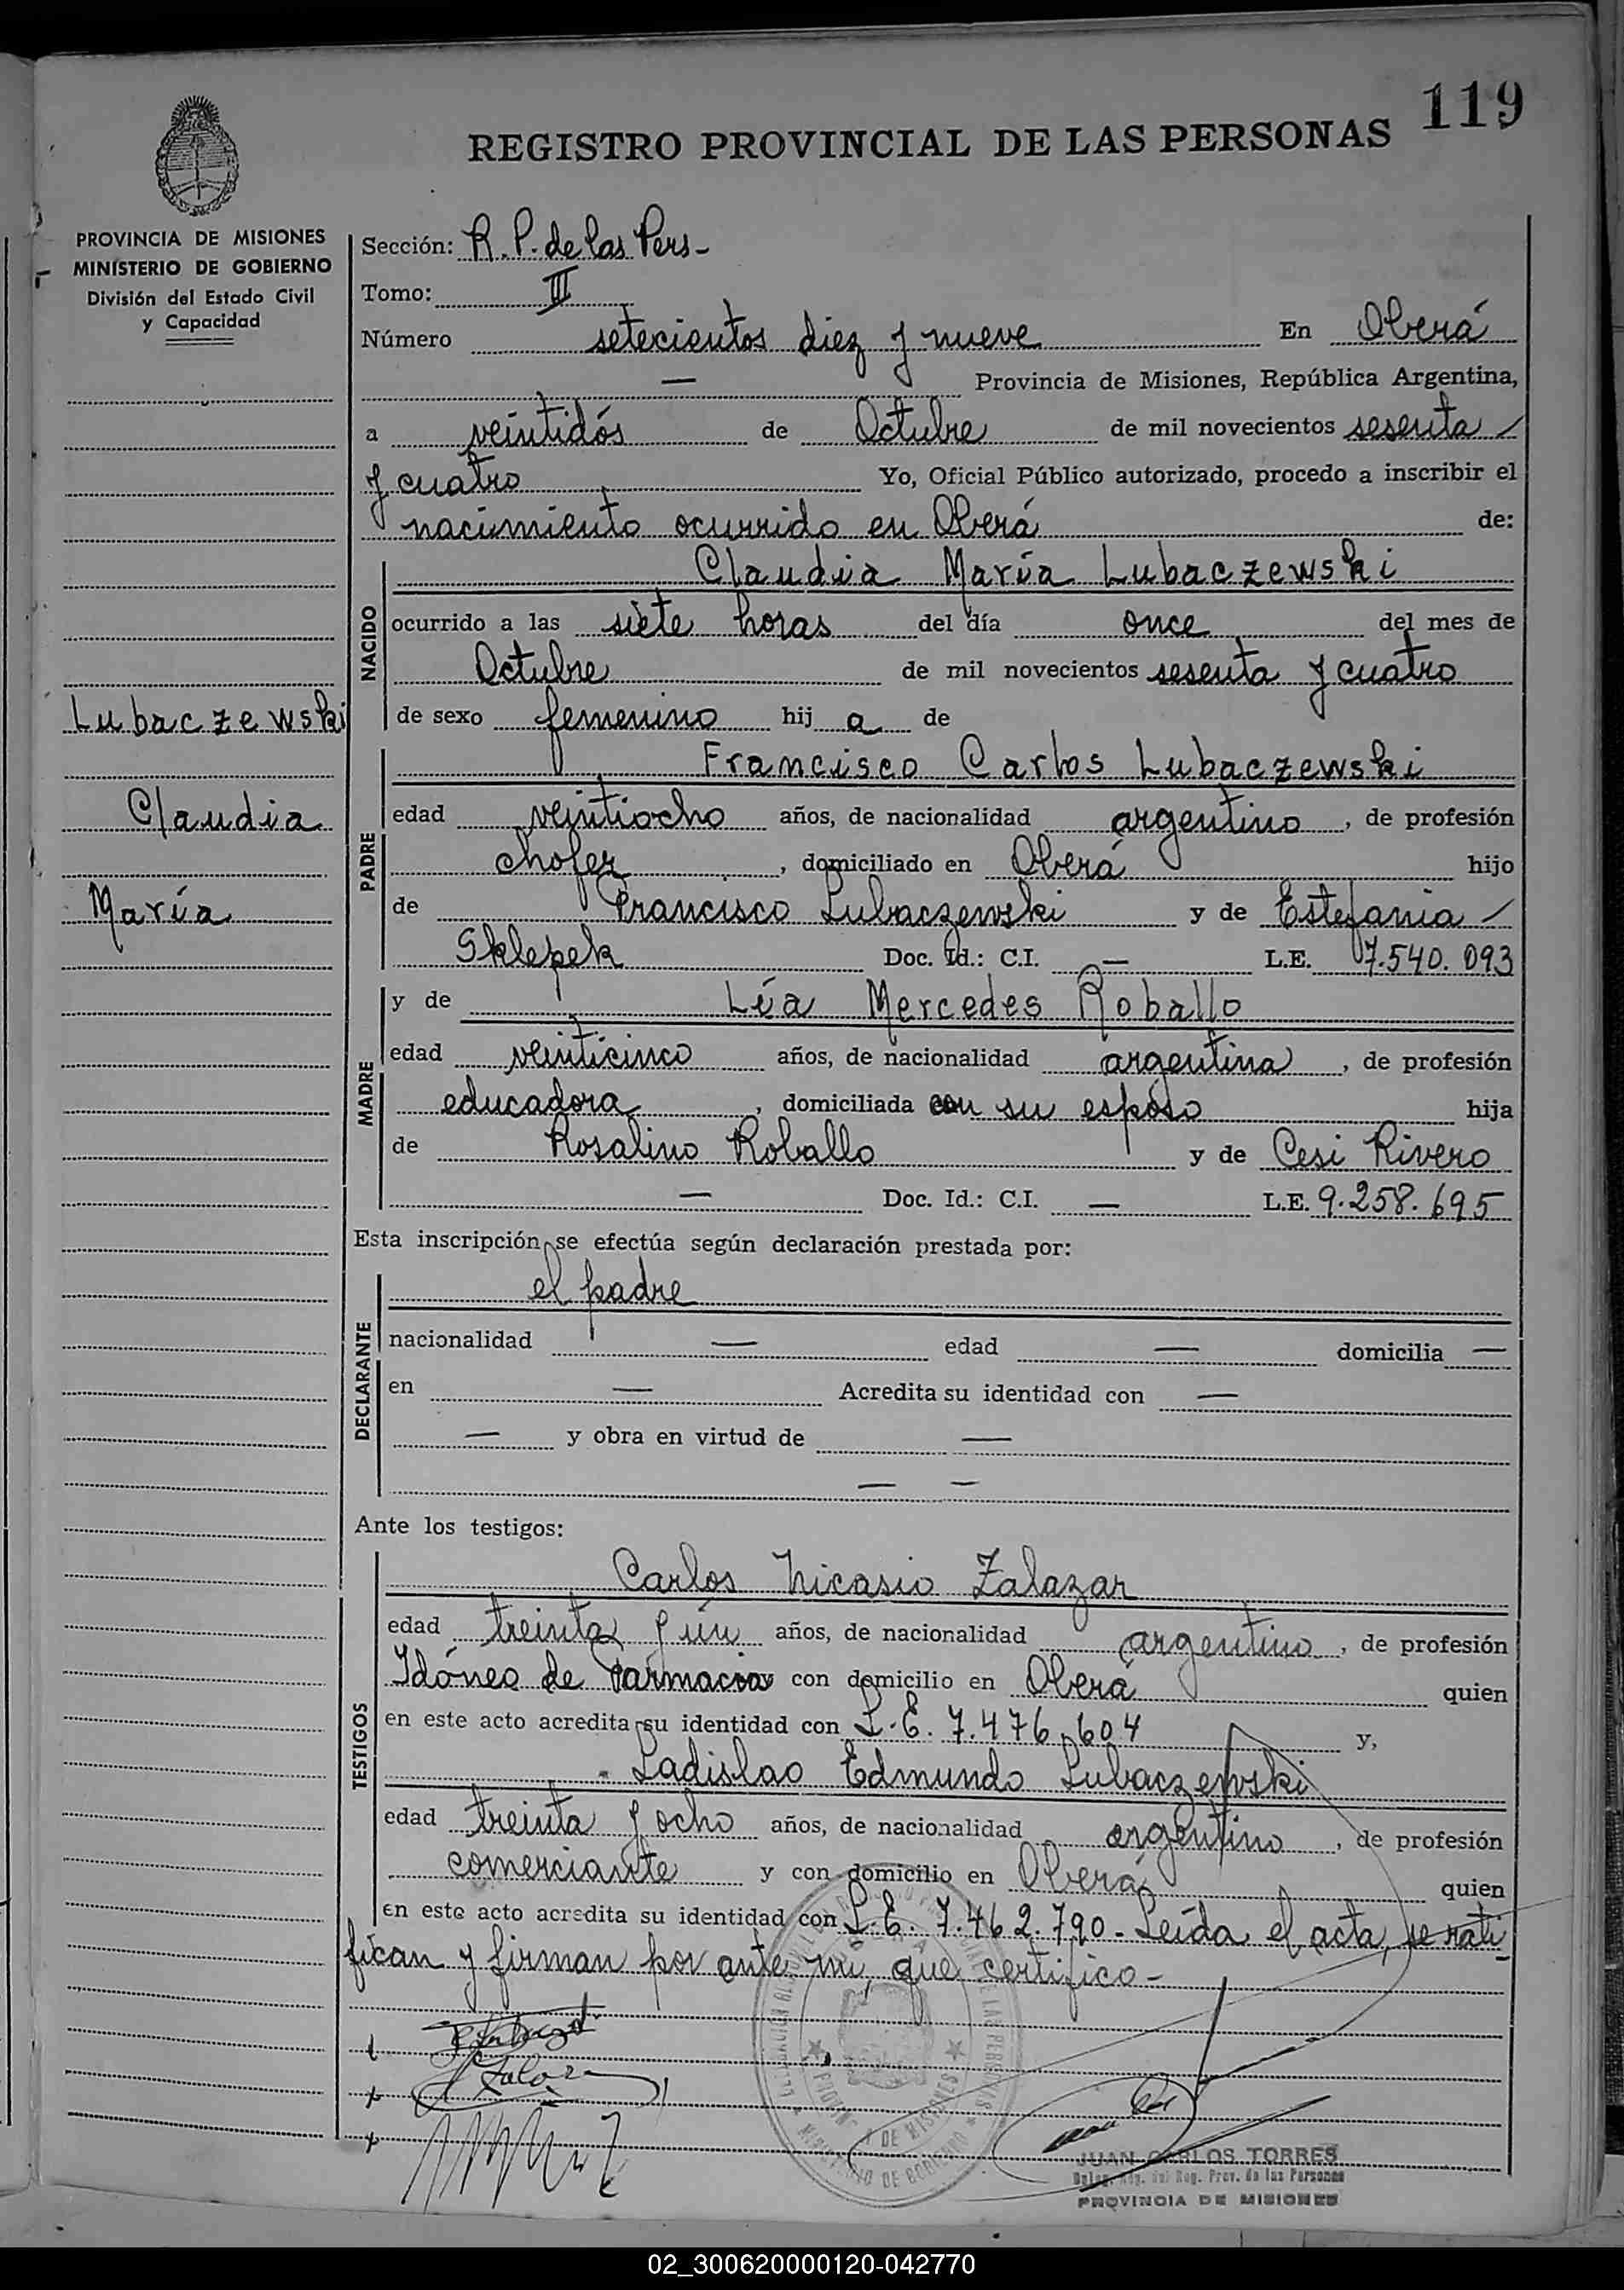 119
REGISTRO PROVINCIAL DE LAS PERSONAS
PROVINCIA DE MISIONES
MINISTERIO DE GOBIERNO
División del Estado Civil
y Capacidad
Lubaczewski
Claudia
María
Sección: R. P. de las Pers-
Tomo: III
Número setecientos diez y nueve En Oberá
— Provincia de Misiones, República Argentina,
a veintidós de Octubre de mil novecientos sesenta
y cuatro Yo, Oficial Público autorizado, procedo a inscribir el
nacimiento ocurrido en Oberá de:
NACIDO
Claudia María Lubaczewski
ocurrido a las siete horas del día once del mes de
Octubre de mil novecientos sesenta y cuatro
de sexo femenino hij a de
PADRE
Francisco Carlos Lubaczewski
edad veintiocho años, de nacionalidad argentino, de profesión
chofer, domiciliado en Oberá hijo
de Francisco Lubaczewski y de Estefania
Sklepek Doc. Id.: C.I. — L.E. 7.540.093
MADRE
y de Léa Mercedes Roballo
edad veinticinco años, de nacionalidad argentina, de profesión
educadora, domiciliada con su esposo hija
de Rosalino Roballo y de Cesi Rivero
— Doc. Id.: C.I. — L.E. 9.258.695
Esta inscripción se efectúa según declaración prestada por:
DECLARANTE
el padre
nacionalidad — edad — domicilia —
en — Acredita su identidad con —
— y obra en virtud de —
— —
Ante los testigos:
TESTIGOS
Carlos Nicasio Zalazar
edad treinta y ún años, de nacionalidad argentino, de profesión
Idóneo de Farmacia con domicilio en Oberá quien
en este acto acredita su identidad con L.E. 7.476.604 y,
Ladislao Edmundo Lubaczewski
edad treinta y ocho años, de nacionalidad argentino, de profesión
comerciante y con domicilio en Oberá quien
en este acto acredita su identidad con L.E. 7.462.790- Leída el acta, se rati
fican y firman por ante mi, que certifico-
JUAN CARLOS TORRES
Reg. Prov. de las Personas
PROVINCIA DE MISIONES
02_300620000120-042770